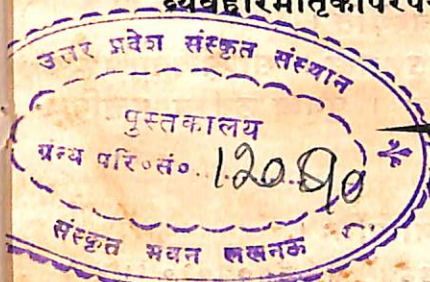 व्यवहारमातृकापरप
उत्तर प्रदेश संस्कृत संस्थान
पुस्तकालय
ग्रन्थ परि०सं०
संस्कृत भवन लखनऊ